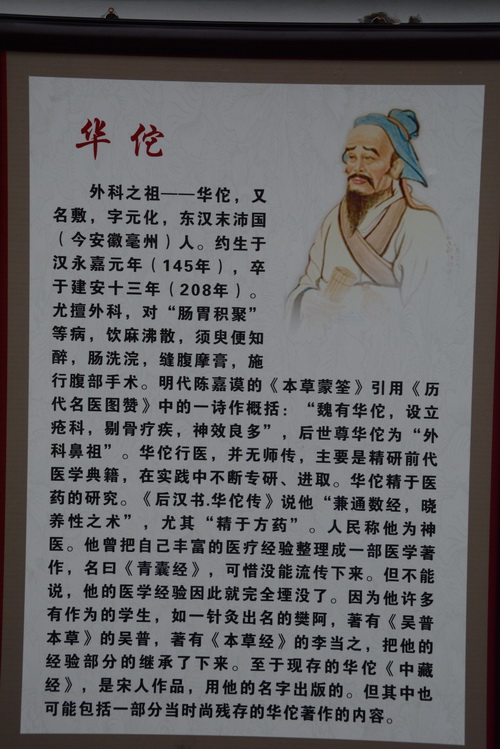 华佗
外科之祖——华佗，又
名敷，字元化，东汉末沛国
（今安徽亳州）人。约生于
汉永嘉元年（145年），卒
于建安十三年（208年）。
尤擅外科，对“肠胃积聚”
等病，饮麻沸散，须臾便知
醉，肠洗浣，缝腹摩膏，施
行腹部手术。明代陈嘉谟的《本草蒙筌》引用《历
代名医图赞》中的一诗作概括：“魏有华佗，设立
疮科，剔骨疗疾，神效良多”，后世尊华佗为“外
科鼻祖”。华佗行医，并无师传，主要是精研前代
医学典籍，在实践中不断专研、进取。华佗精于医
药的研究。《后汉书.华佗传》说他“兼通数经，晓
养性之术”，尤其“精于方药”。人民称他为神
医。他曾把自己丰富的医疗经验整理成一部医学著
作，名曰《青囊经》，可惜没能流传下来。但不能
说，他的医学经验因此就完全堙没了。因为他许多
有作为的学生，如一针灸出名的樊阿，著有《吴普
本草》的吴普，著有《本草经》的李当之，把他的
经验部分的继承了下来。至于现存的华佗《中藏
经》，是宋人作品，用他的名字出版的。但其中也
可能包括一部分当时尚残存的华佗著作的内容。